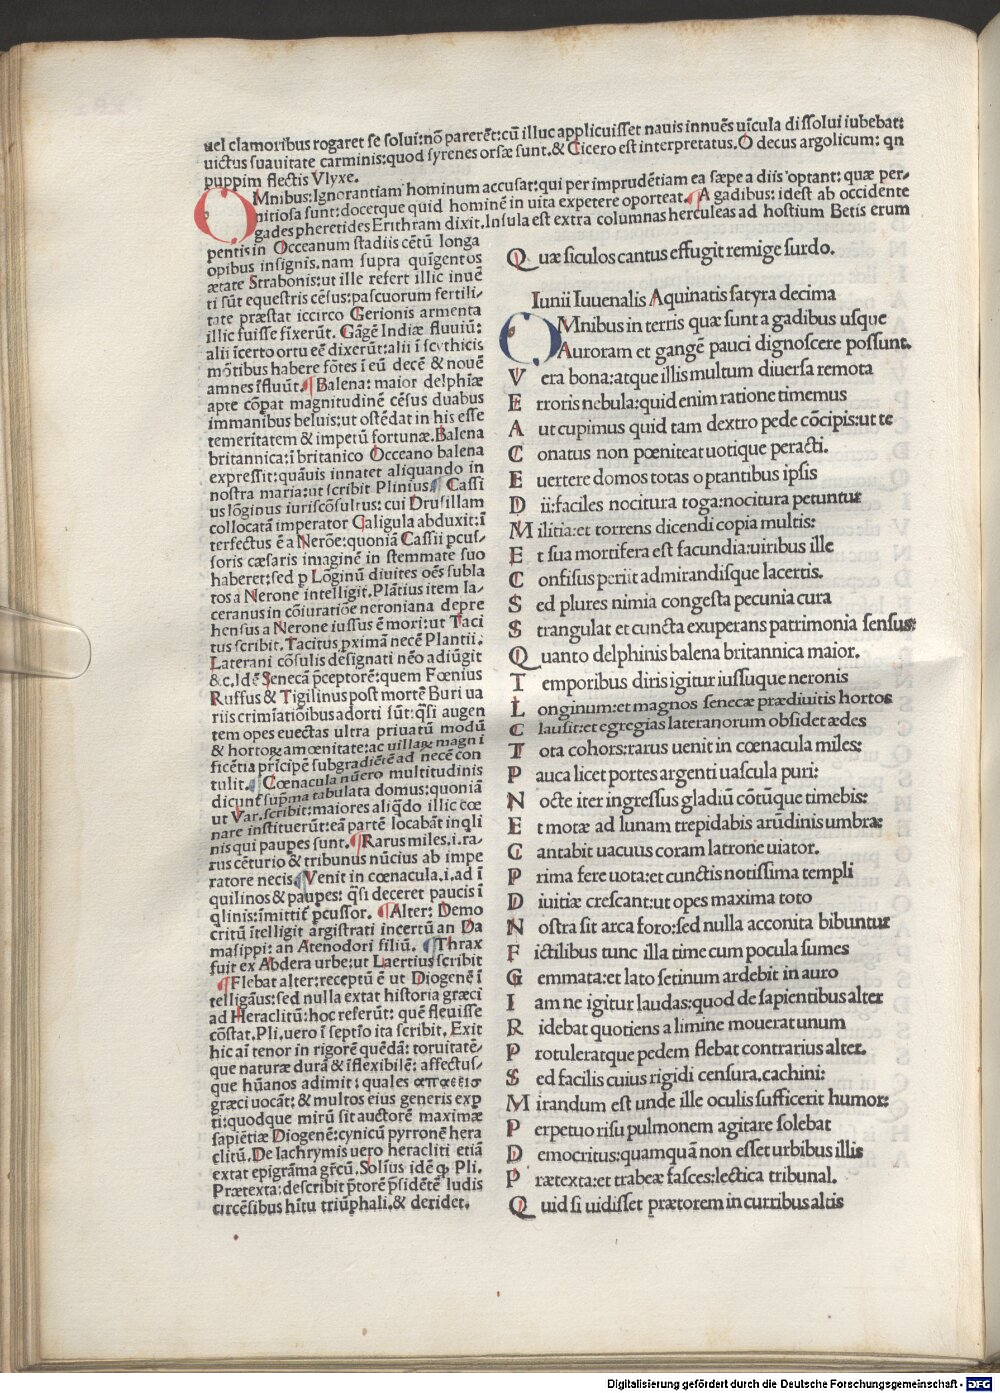 uel clamoribus rogaret se solui:nō parerēt:cū illuc applicuisset nauis innuēs uīcula dissolui iubebat:
uictus suauitate carminis:quod syrenes orsæ sunt.& Cicero est interpretatus.O decus argolicum: qn
puppim flectis Vlyxe.
OMnibus:Ignorantiam hominum accusat:qui per imprudētiam ea sæpe a diis optant: quæ per-
nitiosa sunt:docetque quid hominē in uita expetere oporteat. A gadibus: idest ab occidente
gades pheretides Erithram dixit.Insula est extra columnas herculeas ad hostium Betis erum
pentis in Occeanum stadiis cētū longa
opibus insignis.nam supra quīgentos
ætate Strabonis:ut ille refert illic inuē
ti sūt equestris cēsus:pascuorum fertili-
tate præstat iccirco Gerionis armenta
illic fuisse fixerūt. Gāgē Indiæ fluuiū:
alii īcerto ortu eē dixerūt:alii ī scythicis
mōtibus habere fōtes ī eū decē & nouē
amnes īfluūt. Balena: maior delphiæ
apte cōpat magnitudinē cēsus duabus
immanibus beluis:ut ostēdat in his esse
temeritatem & impetū fortunæ.Balena
britannica:ī britanico Occeano balena
expressit:quāuis innatet aliquando in
nostra maria:ut scribit Plinius. Cassi
us lōginus iuriscōsultus: cui Drusillam
collocatā imperator Caligula abduxit:ī
terfectus ē a Nerōe:quoniā Cassii pcus-
soris cæsaris imaginē in stemmate suo
haberet:sed p Lōginū diuites oēs subla
tos a Nerone intelligit.Plātius item la-
ceranus in cōiuratiōe neroniana depre
hensus a Nerone iussus ē mori:ut Taci
tus scribit.Tacitus pximā necē Plantii.
Laterani cōsulis designati nēo adiūgit
&c.Idē Senecā pceptorē:quem Fœnius
Ruffus & Tigilinus post mortē Buri ua
riis crimīatiōibus adorti sūt:qsi augen
tem opes euectas ultra priuatū modū
& hortoꝝ amœnitate:ac uillaꝝ magni
ficētia prīcipē subgradiētē ad necē con
tulit. Cœnacula nūero multitudinis
dicunt supma tabulata domus:quoniā
ut Var.scribit:maiores aliqdo illic cœ
nare instituerūt:eā partē locabāt inqli
nis qui paupes sunt. Rarus miles.i.ra-
rus cēturio & tribunus nūcius ab impe
ratore necis. Venit in cœnacula.i.ad ī
quilinos & paupes: qsi deceret paucis ī
qlinis:īmittit pcussor. Alter: Demo
critū ītelligit argistrati incertū an Da
masippi: an Atenodori filiū. Thrax
fuit ex Abdera urbe:ut Laertius scribit
Flebat alter:receptū ē ut Diogenē ī
telligāus:sed nulla extat historia græci
ad Heraclitū:hoc referūt: quē fleuisse
cōstat.Pli.uero ī septīo ita scribit. Exit
hic aī tenor in rigorē quēdā: toruitatē-
que naturæ durā & īflexibilē: affectus-
que hūanos adimit: quales απαθεισ
græci uocāt: & multos eius generis exp
ti:quodque mirū sit auctorē maximæ
sapiētiæ Diogenē:cynicū pyrronē hera
clitū.De lachrymis uero heracliti etiā
extat epigrāma grcū.Solīus idē q Pli.
Prætexta:describit ptorē psidētē ludis
circēsibus hītu triūphali.& deridet.
Quæ siculos cantus effugit remige surdo.
Iunii Iuuenalis Aquinatis satyra decima
OMnibus in terris quæ sunt a gadibus usque
Auroram et gangē pauci dignoscere possunt.
V era bona:atque illis multum diuersa remota
E rroris nebula:quid enim ratione timemus
A ut cupimus quid tam dextro pede cōcipis:ut te
C onatus non pœniteat uotique peracti.
E uertere domos totas optantibus ipsis
D ii:faciles nocitura toga:nocitura petuntur
M ilitia:et torrens dicendi copia multis:
E t sua mortifera est facundia:uiribus ille
C onfisus periit admirandisque lacertis.
S ed plures nimia congesta pecunia cura
S trangulat et cuncta exuperans patrimonia sensus:
Q uanto delphinis balena britannica maior.
T emporibus diris igitur iussuque neronis
L onginum:et magnos senecæ prædiuitis hortos
C lausit:et egregias lateranorum obsidet ædes
T ota cohors:rarus uenit in cœnacula miles:
P auca licet portes argenti uascula puri:
N octe iter ingressus gladiū cōtūque timebis:
E t motæ ad lunam trepidabis arūdinis umbræ:
C antabit uacuus coram latrone uiator.
P rima fere uota:et cunctis notissima templi
D iuitiæ crescant:ut opes maxima toto
N ostra sit arca foro:sed nulla acconita bibuntur
F ictilibus tunc illa time cum pocula sumes
G emmata:et lato setinum ardebit in auro
I am ne igitur laudas:quod de sapientibus alter
R idebat quotiens a limine mouerat unum
P rotuleratque pedem flebat contrarius alter.
S ed facilis cuius rigidi censura.cachini:
M irandum est unde ille oculis suffecerit humor:
P erpetuo risu pulmonem agitare solebat
D emocritus:quamquā non esset urbibus illis
P rætexta:et trabeæ fasces:lectica tribunal.
Q uid si uidisset prætorem in curribus altis
Digitalisierung gefördert durch die Deutsche Forschungsgemeinschaft - DFG